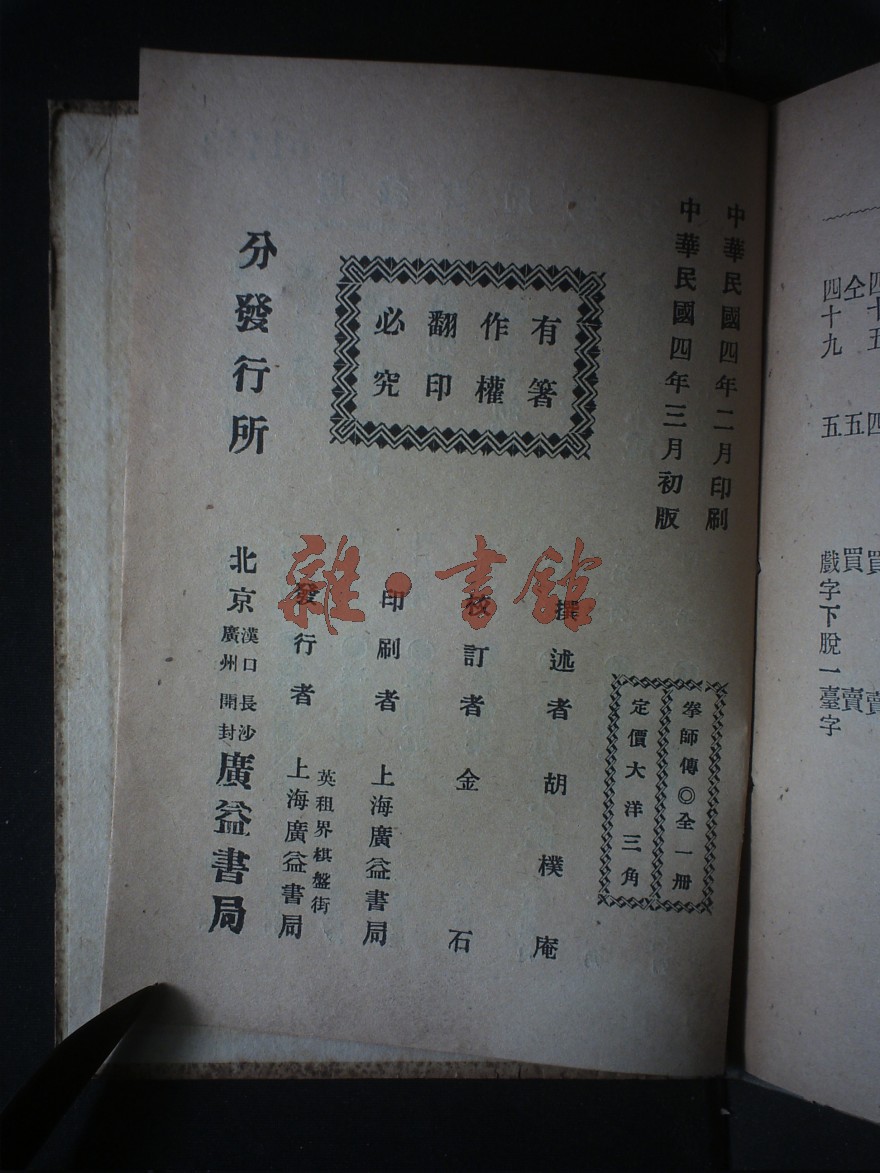 四十五 四 買 賣
仝 五 買 賣
四十九 五 戲字下脫一臺字
中華民國四年二月印刷
中華民國四年三月初版
拳師傳◎全一冊
定價大洋三角
有著
作權
翻印
必究
撰述者 胡樸庵
校訂者 金石
印刷者 上海廣益書局
發行者 英租界棋盤街
上海廣益書局
分發行所
北京 漢口 長沙
廣州 開封
廣益書局
雜·書館